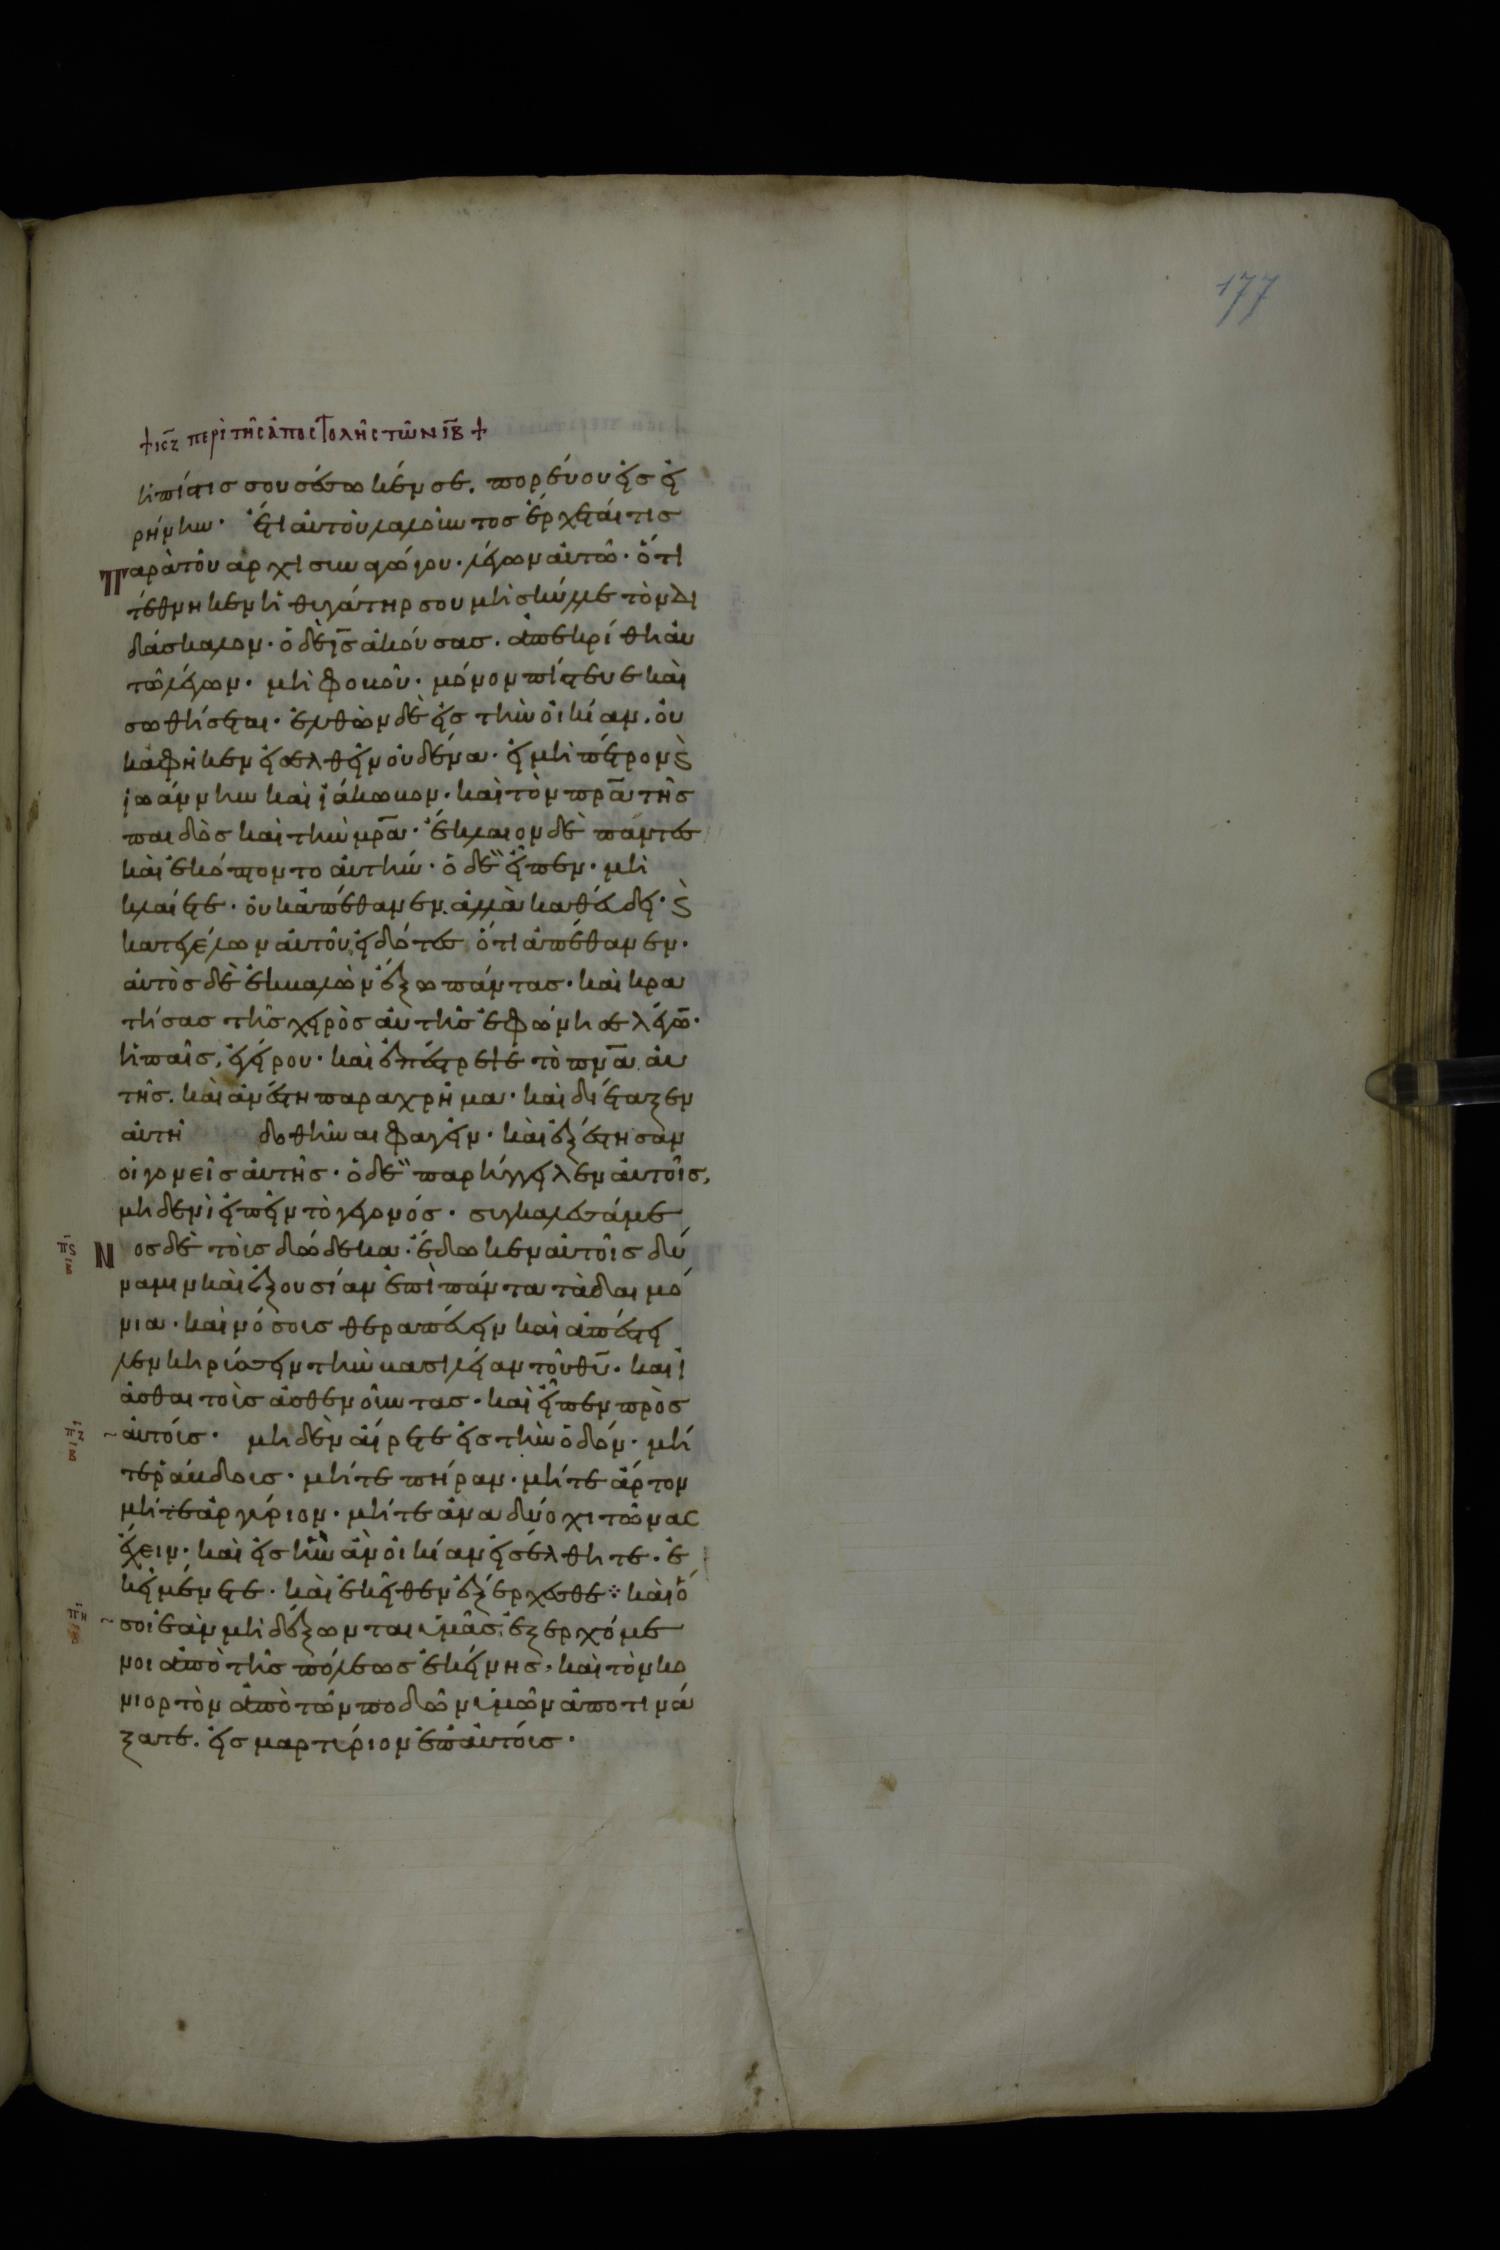 177
+ ιϛζ περὶ τῆς ἀποστολῆς τῶν ιβ +
ἡ πίστις σου σέσωκέν σε. πορεύου εἰς εἰ
ρήνην· ἔτι αὐτοῦ λαλοῦντος ἔρχεταί τις
Παρὰ τοῦ ἀρχισυναγώγου· λέγων αὐτῶ· ὅτι
τέθνηκεν ἡ θυγάτηρ σου μὴ σκύλλε τὸν δι
δάσκαλον· ὁ δὲ ις ἀκούσας. ἀπεκρίθη αὐ
τῶ λέγων· μὴ φοβοῦ· μόνον πίστευε καὶ
σωθήσεται· ἐλθὼν δὲ εἰς τὴν οἰκίαν. οὐ
κ ἀφῆκεν εἰσελθεῖν οὐδένα· εἰ μὴ πέτρον ϗ
ἰωάννην καὶ ἰάκωβον· καὶ τὸν πρα τῆς
παιδὸς καὶ τὴν μρα· ἔκλαιον δὲ πάντες
καὶ ἐκόπτοντο αὐτήν· ὁ δὲ εἶπεν· μὴ
κλαίετε· οὐκ ἀπέθανεν. ἀλλὰ καθεύδει· ϗ
κατεγέλων αὐτοῦ, εἰδότες ὅτι ἀπέθανεν·
αὐτὸς δὲ ἐκβαλὼν ἔξω πάντας· καὶ κρα
τήσας τῆς χειρὸς αὐτῆς ἐφώνησε λέγω·
ἡ παῖς, ἐγείρου· καὶ ἐπέστρεψε τὸ πνα αὐ
τῆς. καὶ ἀνέστη παραχρῆμα· καὶ διέταξεν
αὐτῆ δοθῆναι φαγεῖν· καὶ ἐξέστησαν
οἱ γονεῖς αὐτῆς· ὁ δὲ παρήγγειλεν αὐτοῖς,
μηδενὶ εἰπεῖν τὸ γεγονός· συγκαλεσάμε
Νος δὲ τοὺς δώδεκα· ἔδωκεν αὐτοῖς δύ
ναμιν καὶ ἐξουσίαν ἐπὶ πάντα τὰ δαιμό
νια· καὶ νόσους θεραπεύειν καὶ ἀπέστει
λεν κηρύσσειν τὴν βασιλείαν τοῦ θυ· καὶ ἰ
ᾶσθαι τοὺς ἀσθενοῦντας· καὶ εἶπεν πρὸς
αὐτούς· μηδὲν αἴρετε εἰς τὴν ὁδόν· μή
τε ῥάβδους· μήτε πήραν· μήτε ἄρτον
μήτε ἀργύριον· μήτε ἀνα δύο χιτῶνας
ἔχειν· καὶ εἰς ἣν ἂν οἰκίαν εἰσέλθητε· ἐ
κεῖ μένετε· καὶ ἐκεῖθεν ἐξέρχεσθε· καὶ ὅ
σοι ἐὰν μὴ δέξωνται ὑμᾶς. ἐξερχόμε
νοι ἀπὸ τῆς πόλεως ἐκείνης. καὶ τὸν κο
νιορτὸν ἀπὸ τῶν ποδῶν ὑμῶν ἀποτινά
ξατε. εἰς μαρτύριον ἐπ αὐτούς·
πϛ
β
πζ
β
πη
β